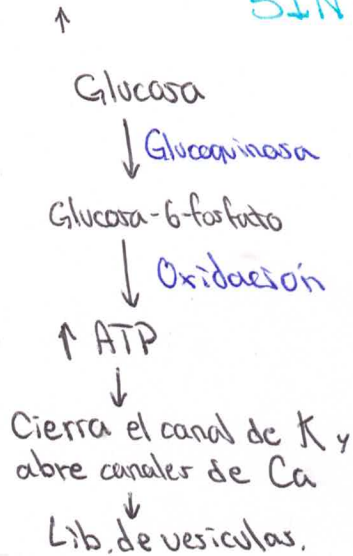 ↑ SIN
Glucosa
↓ Glucoquinasa
Glucosa-6-fosfato
↓ Oxidación
↑ ATP
↓
Cierra el canal de K y
abre canales de Ca
↓
Lib. de vesiculas.